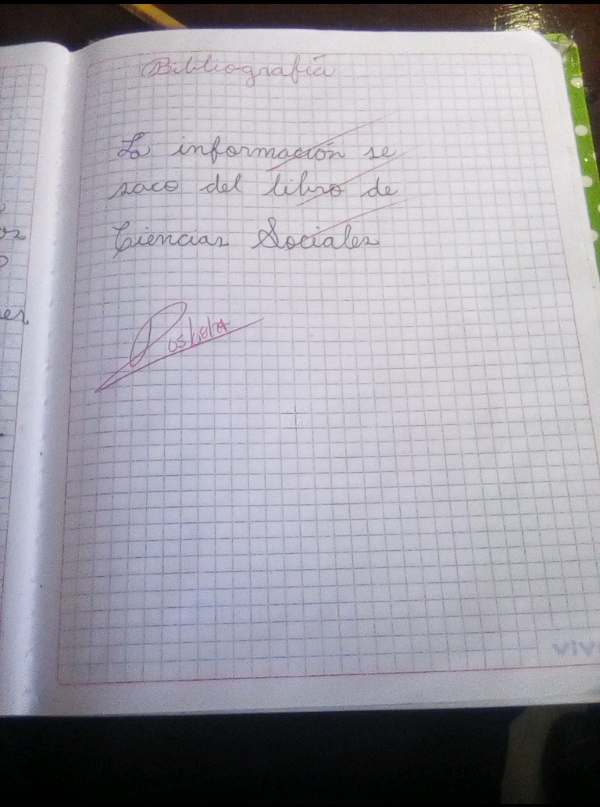 Bibliografía
La información se
saco del libro de
Ciencias Sociales